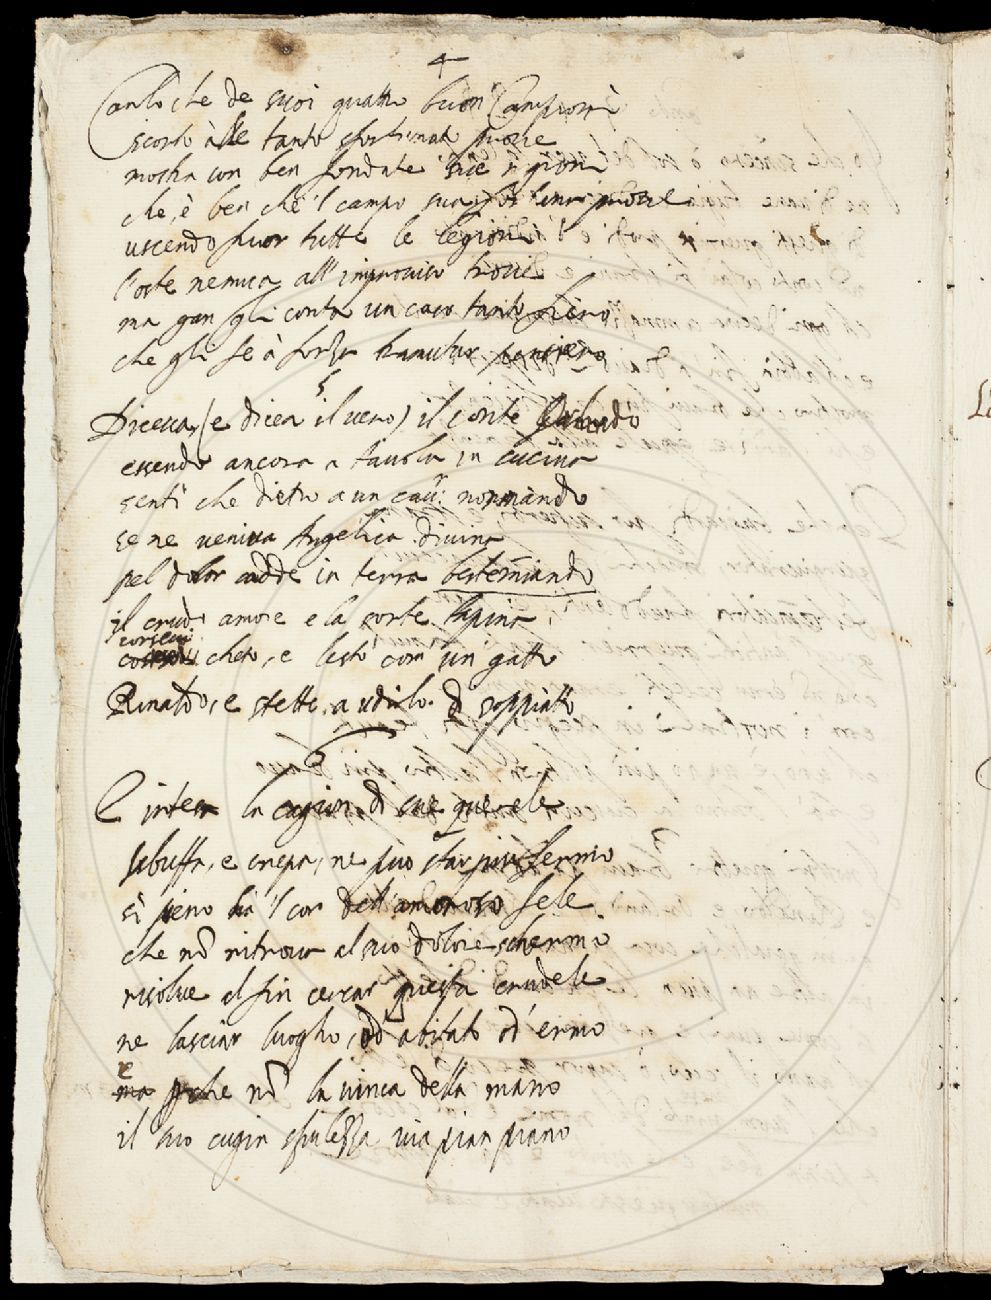 4
Carlo che de suoi quattro buon Campioni
scorto à lle tanto sfortunate prove
mostra con ben fondate sue ragioni
che, è ben che 'l campo
uscendo fuor tutte le legioni
l'oste nemica all'improviso trove
ma gan gli conta un caso tanto fiero
che gli fe à forza tramutar pensiero
5
Diceva, (e dicea il vero) il conte Orlando
essendo ancora a tavola in cucina
sentì che dietro a un cau: normando
se ne veniva Angelica divina
pel dolor cadde in terra bestemiando
il crudo amore e la sorte tapina,
corsevi cheto, e lesto com' un gatto
Rinaldo, e stette, a udirlo. di soppiatto
E intesa la cagion di sue querele
sbuffa, e crepa, ne può star più fermo
sì pieno hà 'l cor dell'amoroso fele
che nõ ritrova al suo dolore schermo
risolve al fin cercar questa crudele
ne lasciar luogho, òd abitato od' ermo
ma e perche nõ la vinca della mano
il suo cugin spulezza via pian piano